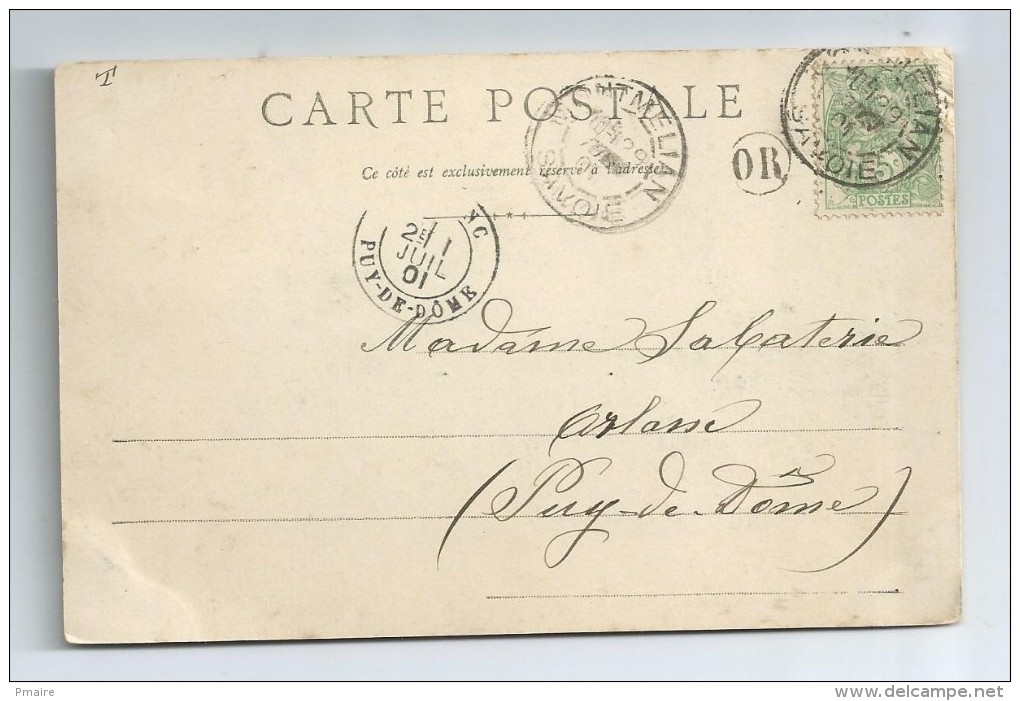 T
CARTE POSTALE
Ce côté est exclusivement réservé à l'adresse
MONTMELIAN
SAVOIE
OR
MELIAN
SAVOIE
5c
POSTES
2E 1
JUIL
01
PUY-DE-DÔME
Madame Sabaterie
Arlanc
(Puy-de-Dôme)
Pmaire
http://www.delcampe.net